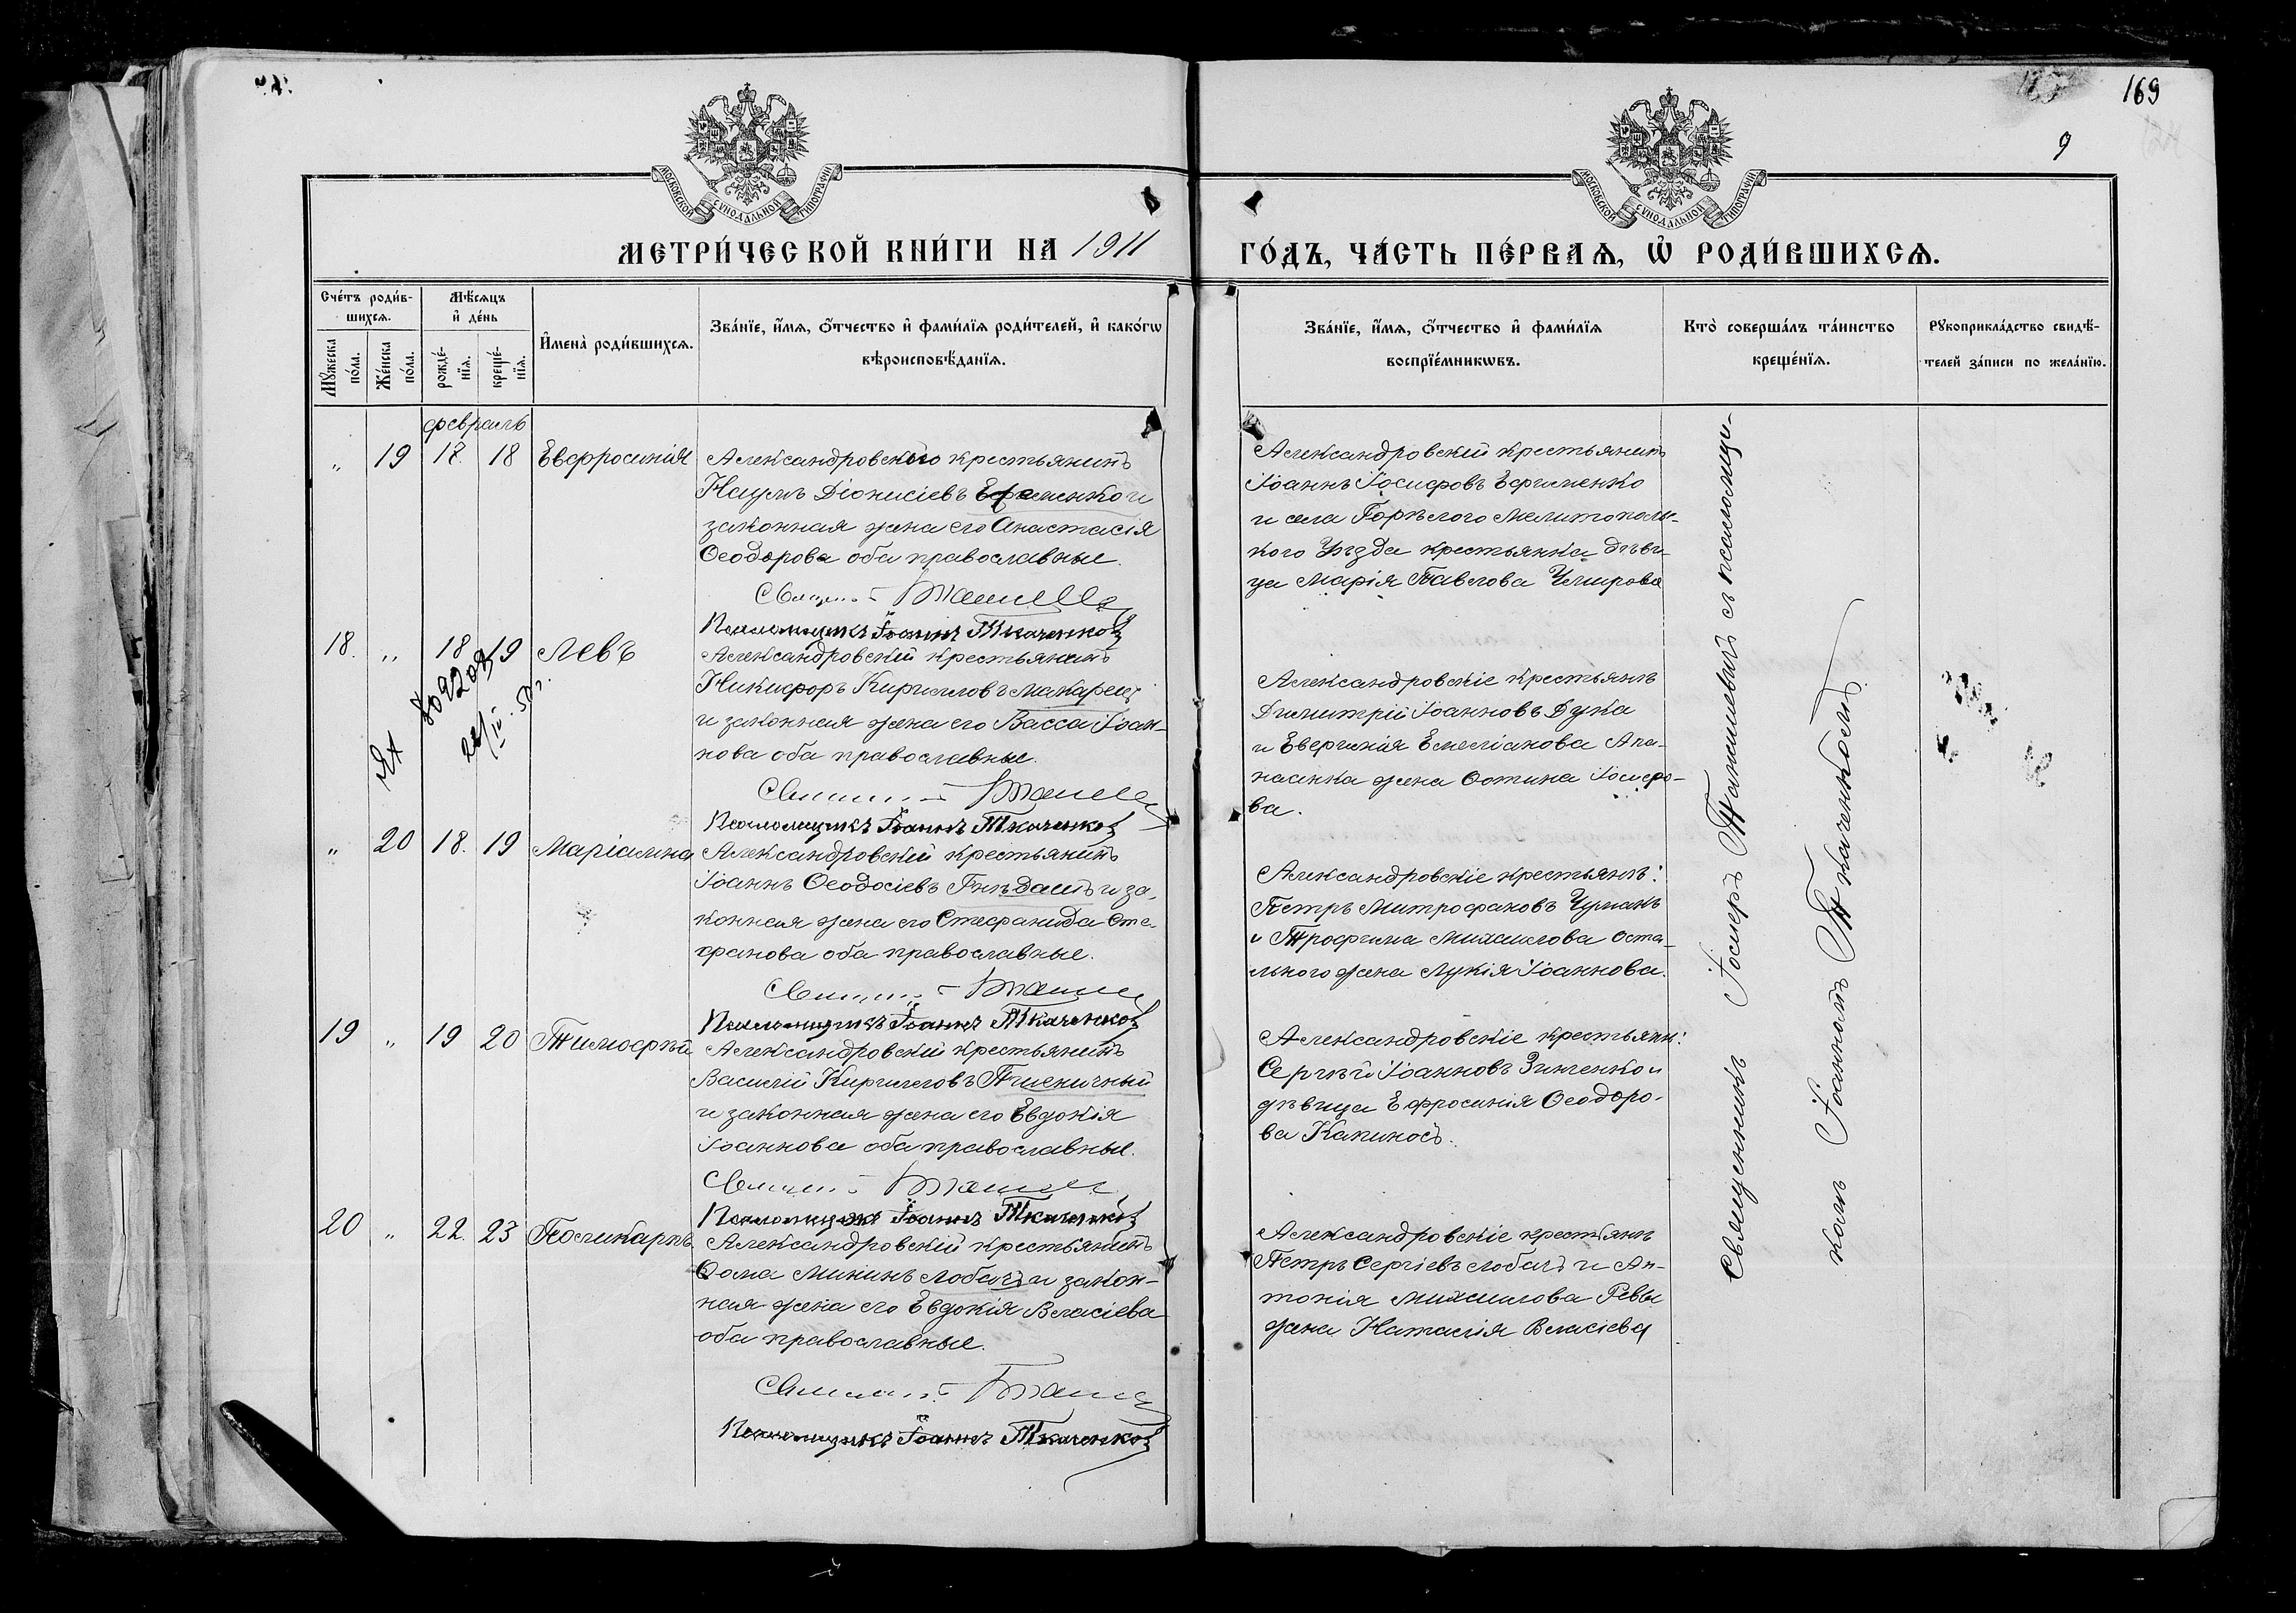 169
9
МОСКОВСКОЙ СѴНОДАЛЬНОЙ ТИПОГРАФІИ
МОСКОВСКОЙ СѴНОДАЛЬНОЙ ТИПОГРАФІИ
МЕТРИ́ЧЕСКОЙ КНИ́ГИ НА 1911
ГО́ДЪ, ЧА́СТЬ ПЕ́РВАѦ, Ѽ РОДИ́ВШИХСѦ.
Сче́тъ роди́в-
шихсѧ.
Мꙋ́жеска по́ла.
Же́нска по́ла.
Мѣ́сѧцъ
и҆ де́нь
рожде́-
нїѧ.
креще́-
нїѧ.
И҆мена̀ роди́вшихсѧ.
Зва́нїе, и҆́мѧ, ѻ҆́тчество и҆ фами́лїѧ роди́телей, и҆ како́гѡ
вѣроисповѣ́данїѧ.
Зва́нїе, и҆́мѧ, ѻ҆́тчество и҆ фами́лїѧ
воспрїе́мникѡвъ.
Кто̀ соверша́лъ та́инство
креще́нїѧ.
Рꙋкоприкла́дство свидѣ́-
телей за́писи по жела́нїю.
февраль
" 19 18. 18 Евфросинія
Александровскій крестьянинъ
Наумъ Діонисіевъ Ефименко и
законная жена его Анастасія
Ѳеодорова оба православные.
Псаломщикъ Іоаннъ Ткаченко
Александровскій крестьянинъ
Іоаннъ Іосифовъ Ефименко
и села Горѣлого Мелитополь-
кого Уѣзда крестьянка дѣви-
ца Марія Павлова Чмирова
18. " 18 19 Левъ
Александровскій крестьянинъ
Никифоръ Кирилловъ Макарец
и законная жена его Васса Іоан-
нова оба православные.
Псаломщикъ Іоаннъ Ткаченко
Александровскіе крестьяне
Димитрій Іоанновъ Дука
и Емеліанова Апа-
жена Фотина Іосифо-
ва.
" 20 18. 19 Маріамна
Александровскій крестьянинъ
Іоаннъ Ѳеодосіевъ Гнѣдашъ и за-
конная жена его Стефанида Сте-
фанова оба православные.
Псаломщикъ Іоаннъ Ткаченко
Александровскіе крестьяне:
Петръ Митрофановъ Чуманъ
и Трофима Михаилова Оста-
льного жена Лукія Іоаннова.
19 " 19 20 Тимофей
Александровскій крестьянинъ
Василій Кирилловъ Пшеничный
и законная жена его Евдокія
Іоаннова оба православные.
Псаломщикъ Іоаннъ Ткаченко
Александровскіе крестьяни:
Сергѣй Іоанновъ Зинченко и
дѣвица Ефросинія Ѳеодоро-
ва Капиносъ.
20 " 22. 23 Поликарпъ
Александровскій крестьянинъ
Ѳома Мининъ Лобачъ и закон-
ная жена его Евдокія Власіева
оба православные.
Псаломщикъ Іоаннъ Ткаченко
Александровскіе крестьяне
Петръ Сергіевъ Лобачъ и Ан-
тонія Михаилова Ревы
жена Наталія Власіева
Священникъ Іосифъ съ псаломщи-
комъ Іоанномъ Ткаченкомъ